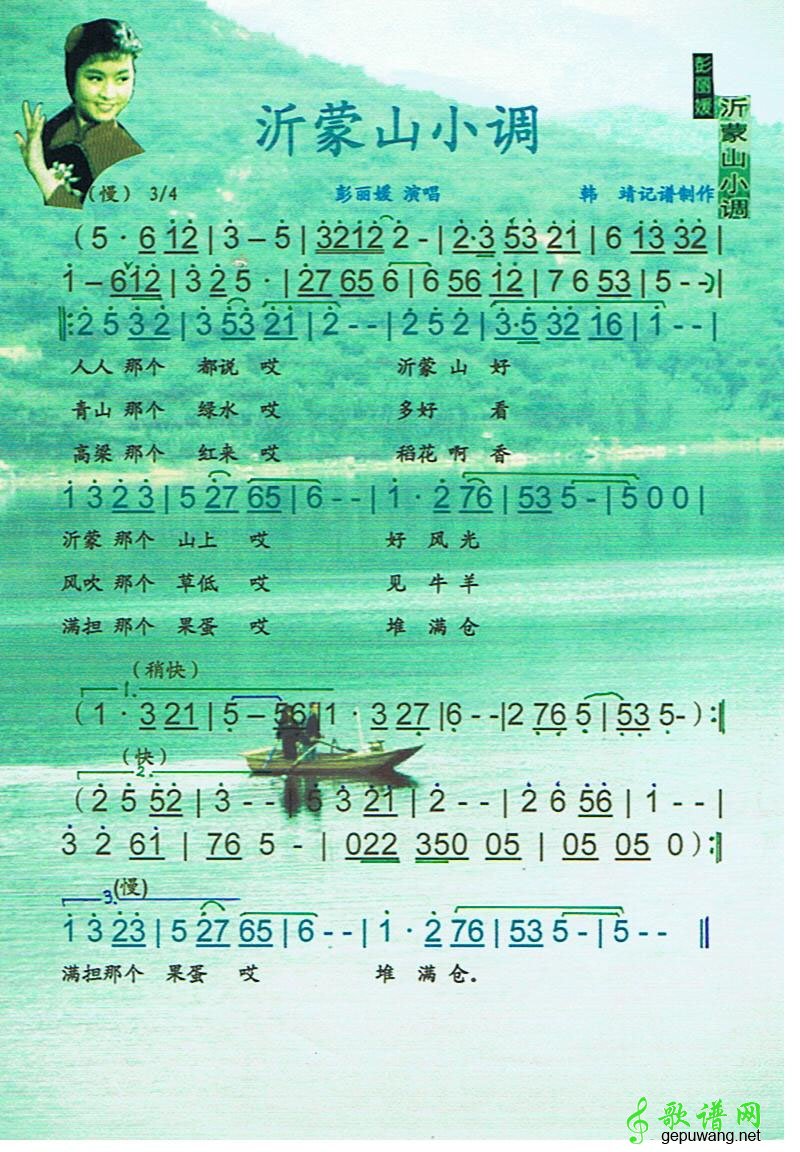 彭丽媛
沂蒙山小调
沂蒙山小调
(慢) 3/4 彭丽媛 演唱 韩 靖记谱制作
(5 · 6 i2 | 3 – 5 | 3212 2 - | 2·3 53 21 | 6 i3 32 |
i – 6i2 | 3 2 5 · | 27 65 6 | 6 56 i2 | 7 6 53 | 5 - -)
‖: 2 5 3 2 | 3 53 21 | 2 - - | 2 5 2 | 3·5 32 i6 | i - - |
人人 那个 都说 哎 沂蒙 山 好
青山 那个 绿水 哎 多好 看
高粱 那个 红来 哎 稻花 啊 香
i 3 2 3 | 5 27 65 | 6 - - | i · 2 76 | 53 5 - | 5 0 0 |
沂蒙 那个 山上 哎 好 风 光
风吹 那个 草低 哎 见 牛 羊
满担 那个 果蛋 哎 堆 满 仓
(稍快)
1.
(1 · 3 21 | 5 – 56 | 1 · 3 27 | 6 - - | 2 76 5 | 53 5 - ) :‖
(快)
2.
(2 5 52 | 3 - - | 5 3 21 | 2 - - | 2 6 56 | i - - |
3 2 6i | 76 5 - | 022 350 05 | 05 05 0 ) :‖
3. (慢)
i 3 23 | 5 27 65 | 6 - - | i · 2 76 | 53 5 - | 5 - - ‖
满担那个 果蛋 哎 堆 满 仓。
歌谱网
gepuwang.net